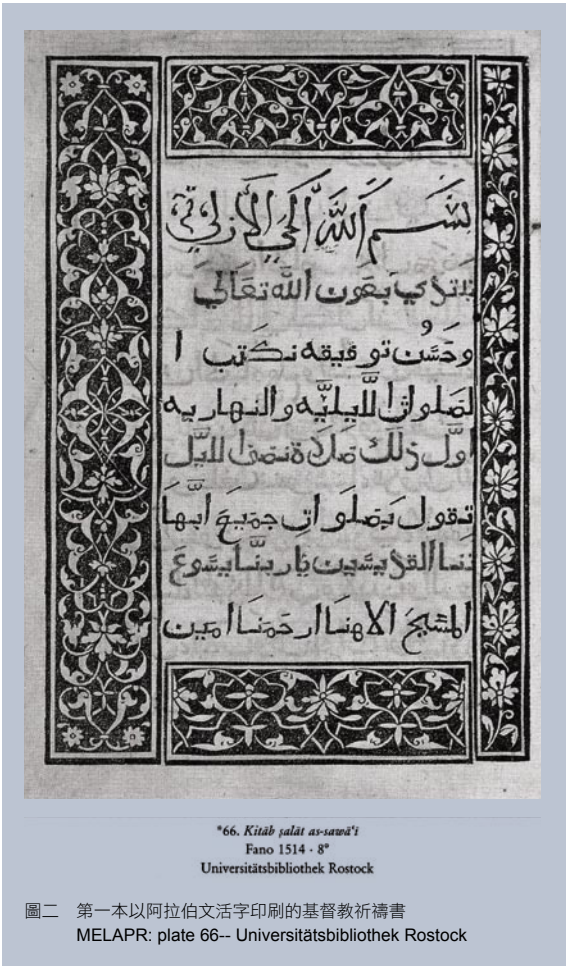 بسم الله الحي الازلي
نبتدي بعون الله تعالى
وحسن توفيقه نكتب ا
لصلواة الليليه والنهاريه
اول ذلك صلاة نصف الليل
تقول بصلوات جميع ابها
تنا القديسين يا ربنا يسوع
المسيح الاهنا ارحمنا امين
*66. Kitāb ṣalāt as-sawāʿi
Fano 1514 · 8°
Universitätsbibliothek Rostock
圖二 第一本以阿拉伯文活字印刷的基督教祈禱書
MELAPR: plate 66-- Universitätsbibliothek Rostock